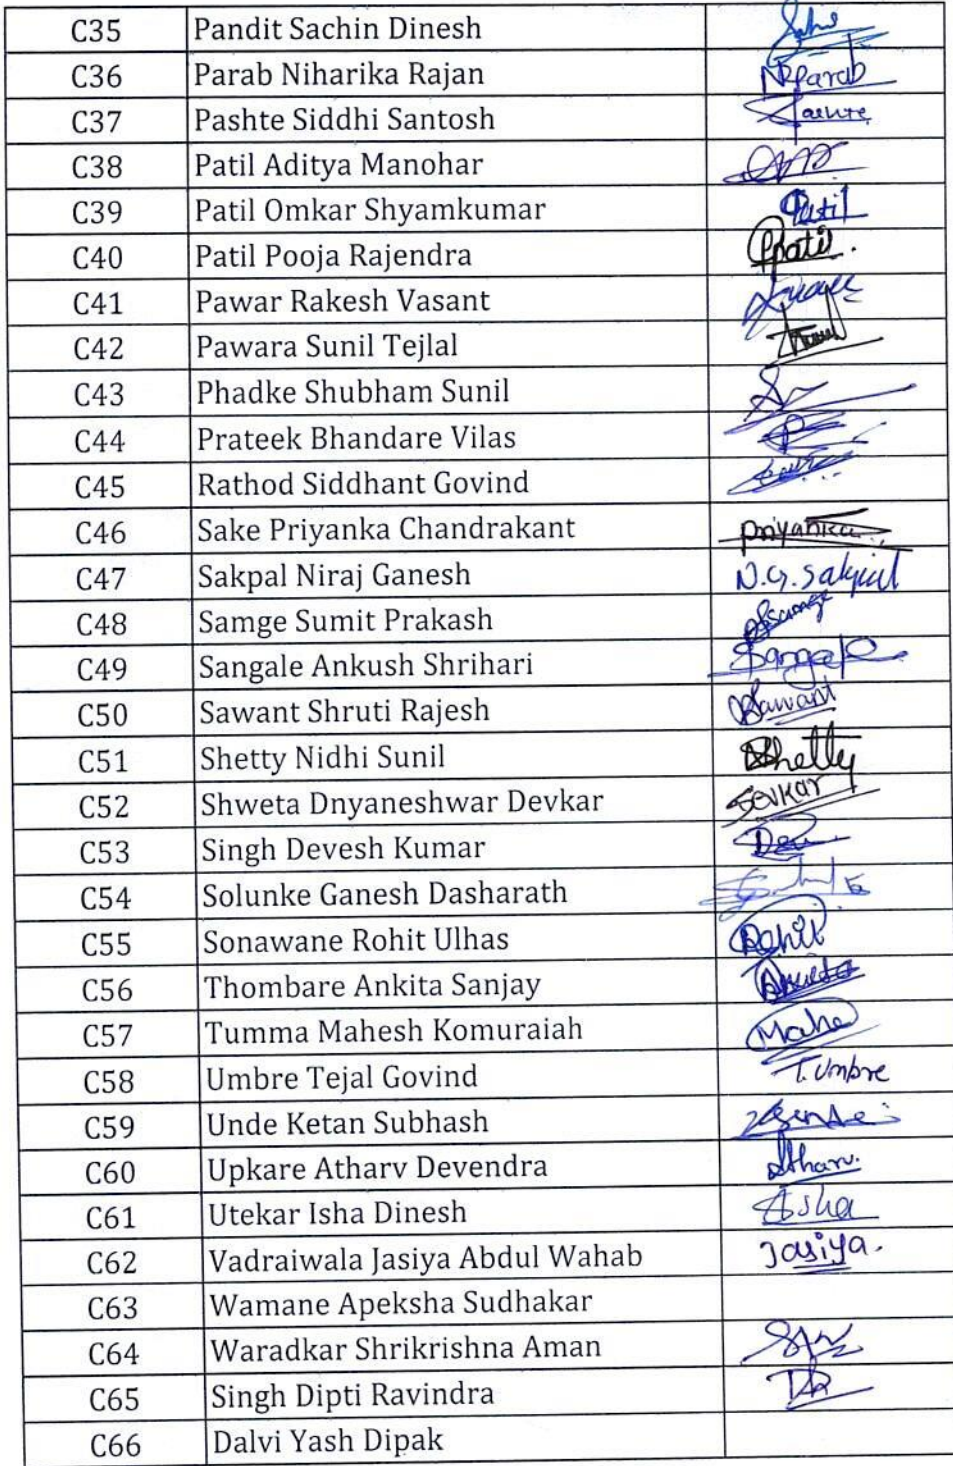 C35 Pandit Sachin Dinesh
C36 Parab Niharika Rajan NRParab
C37 Pashte Siddhi Santosh
C38 Patil Aditya Manohar
C39 Patil Omkar Shyamkumar Patil
C40 Patil Pooja Rajendra Ppatil.
C41 Pawar Rakesh Vasant
C42 Pawara Sunil Tejlal
C43 Phadke Shubham Sunil
C44 Prateek Bhandare Vilas
C45 Rathod Siddhant Govind
C46 Sake Priyanka Chandrakant Priyanka
C47 Sakpal Niraj Ganesh N.G. Sakpal
C48 Samge Sumit Prakash
C49 Sangale Ankush Shrihari Sangale
C50 Sawant Shruti Rajesh Sawant
C51 Shetty Nidhi Sunil Shetty
C52 Shweta Dnyaneshwar Devkar Devkar
C53 Singh Devesh Kumar
C54 Solunke Ganesh Dasharath
C55 Sonawane Rohit Ulhas Rohit
C56 Thombare Ankita Sanjay
C57 Tumma Mahesh Komuraiah Mahe
C58 Umbre Tejal Govind T. Umbre
C59 Unde Ketan Subhash
C60 Upkare Atharv Devendra Atharv.
C61 Utekar Isha Dinesh Isha
C62 Vadraiwala Jasiya Abdul Wahab Jasiya.
C63 Wamane Apeksha Sudhakar
C64 Waradkar Shrikrishna Aman
C65 Singh Dipti Ravindra
C66 Dalvi Yash Dipak